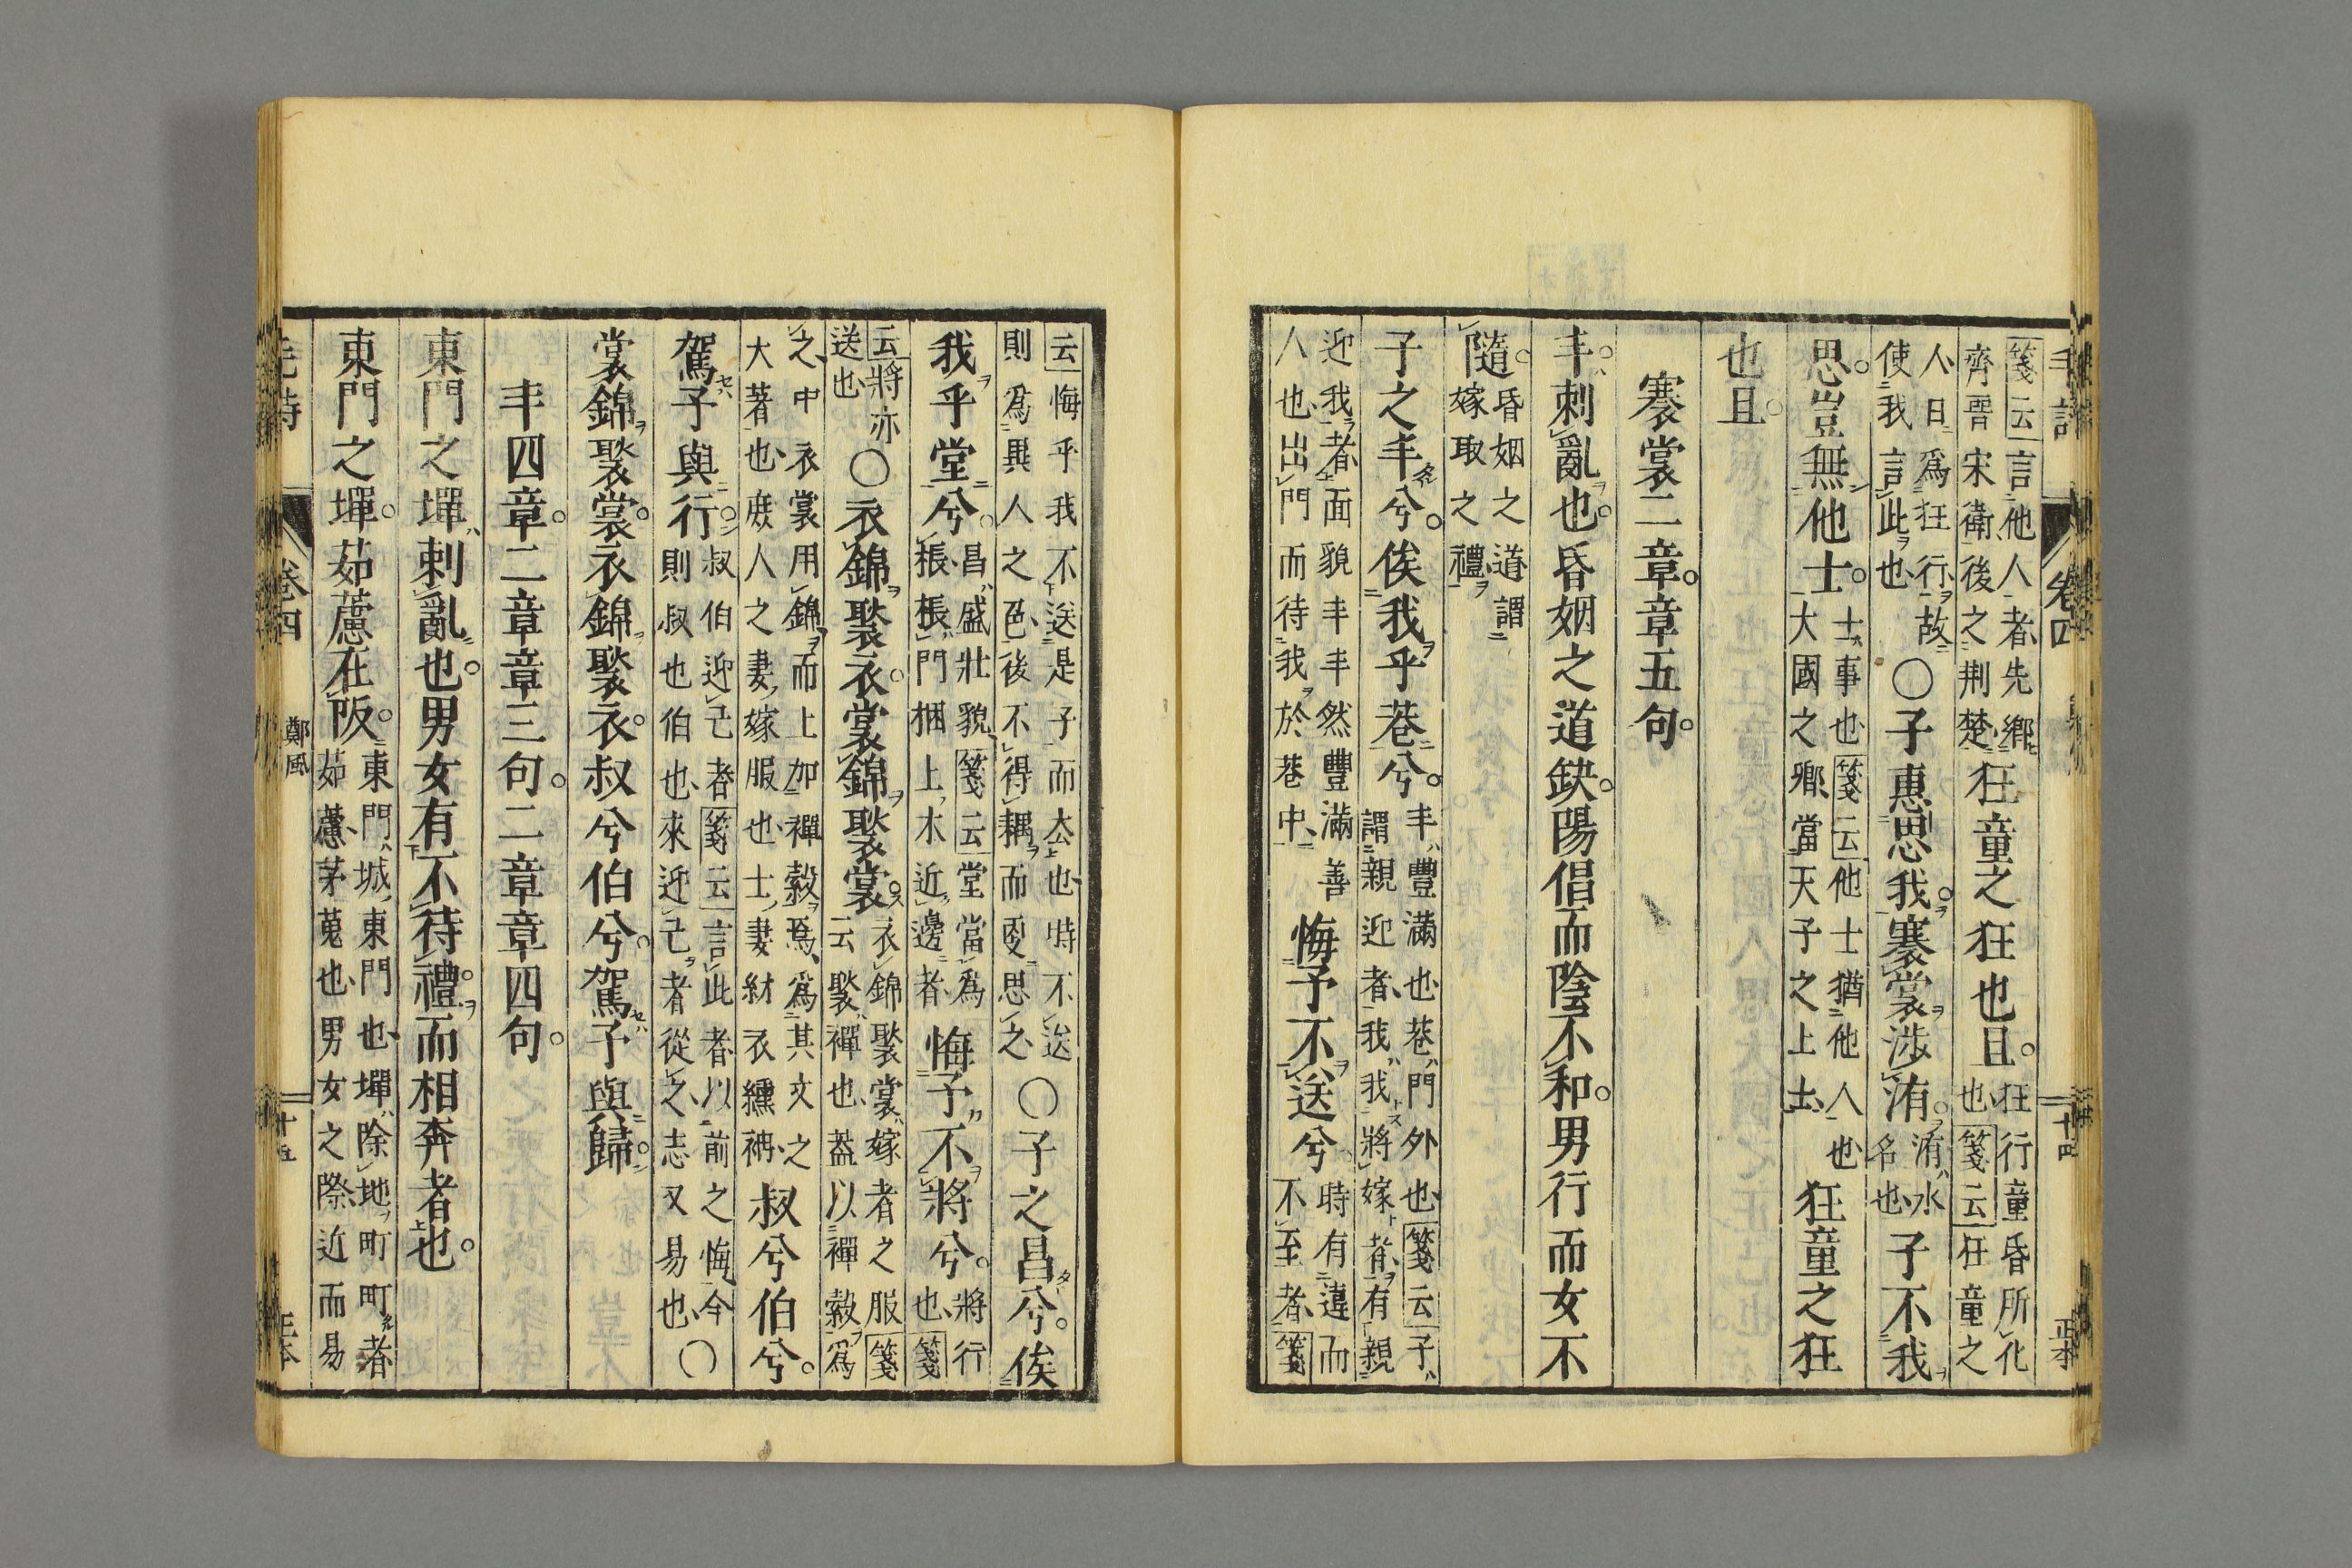 毛詩 卷四 十四
箋云言他人者先鄉
齊晉宋衛後之荆楚
狂童之狂也且
狂行童昏所化
也箋云狂童之
人日爲狂行故
使我言此也
○子惠思我褰裳涉洧
洧水
名也
子不我
思豈無他士
士事也箋云他士猶他人也
大國之卿當天子之上士
狂童之狂
也且
褰裳二章章五句
丰刺亂也昏姻之道缺陽倡而陰不和男行而女不
隨
昏姻之道謂
嫁取之禮
子之丰兮俟我乎巷兮
丰豐滿也巷門外也箋云子
謂親迎者我我將嫁者有親
迎我者面貌丰丰然豐滿善
人也出門而待我於巷中
悔予不送兮
時有違而
不至者箋
云悔乎我不送是子而去也時不送
則爲異人之色後不得耦而更思之
○子之昌兮俟
我乎堂兮
昌盛壯貌箋云堂當爲
棖棖門梱上木近邊者
悔予不將兮
將行
也箋
云將亦
送也
○衣錦褧衣裳錦褧裳
衣錦褧裳嫁者之服箋
云褧襌也蓋以襌縠爲
之中衣裳用錦而上加襌縠焉爲其文之
大著也庶人之妻嫁服也士妻紂衣纁袡
叔兮伯兮
駕予與行
叔伯迎己者箋云言此者以前之悔今
則叔也伯也來迎己者從之志又易也
○
裳錦褧裳衣錦褧衣叔兮伯兮駕予與歸
丰四章二章章三句二章章四句
東門之墠刺亂也男女有不待禮而相奔者也
東門之墠茹藘在阪
東門城東門也墠除地町町者
茹藘茅蒐也男女之際近而易
毛詩 卷四 鄭風 十五